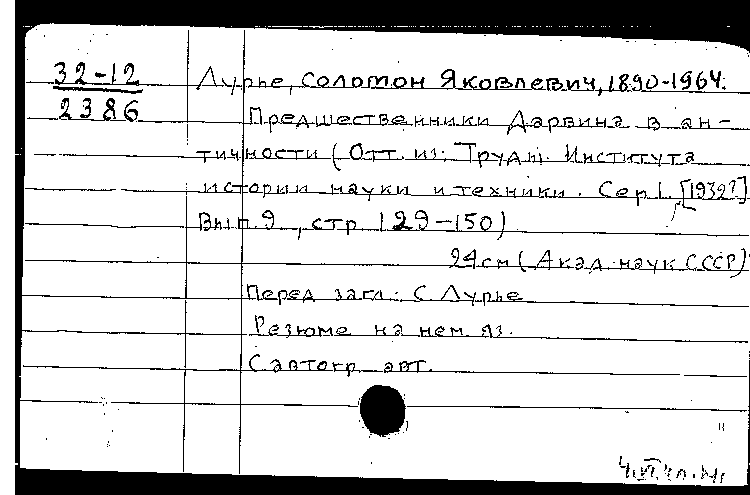 32-12
2386
Лурье, Соломон Яковлевич, 1890-1964.
Предшественники Дарвина в ан-
тичности (Отт. из: Труды Института
истории науки и техники. Сер I. [1932?]
Вып. 9, стр. 129-150)
24 см (Акад. наук СССР)
Перед загл.: С. Лурье
Резюме на нем. яз.
С автогр. авт.